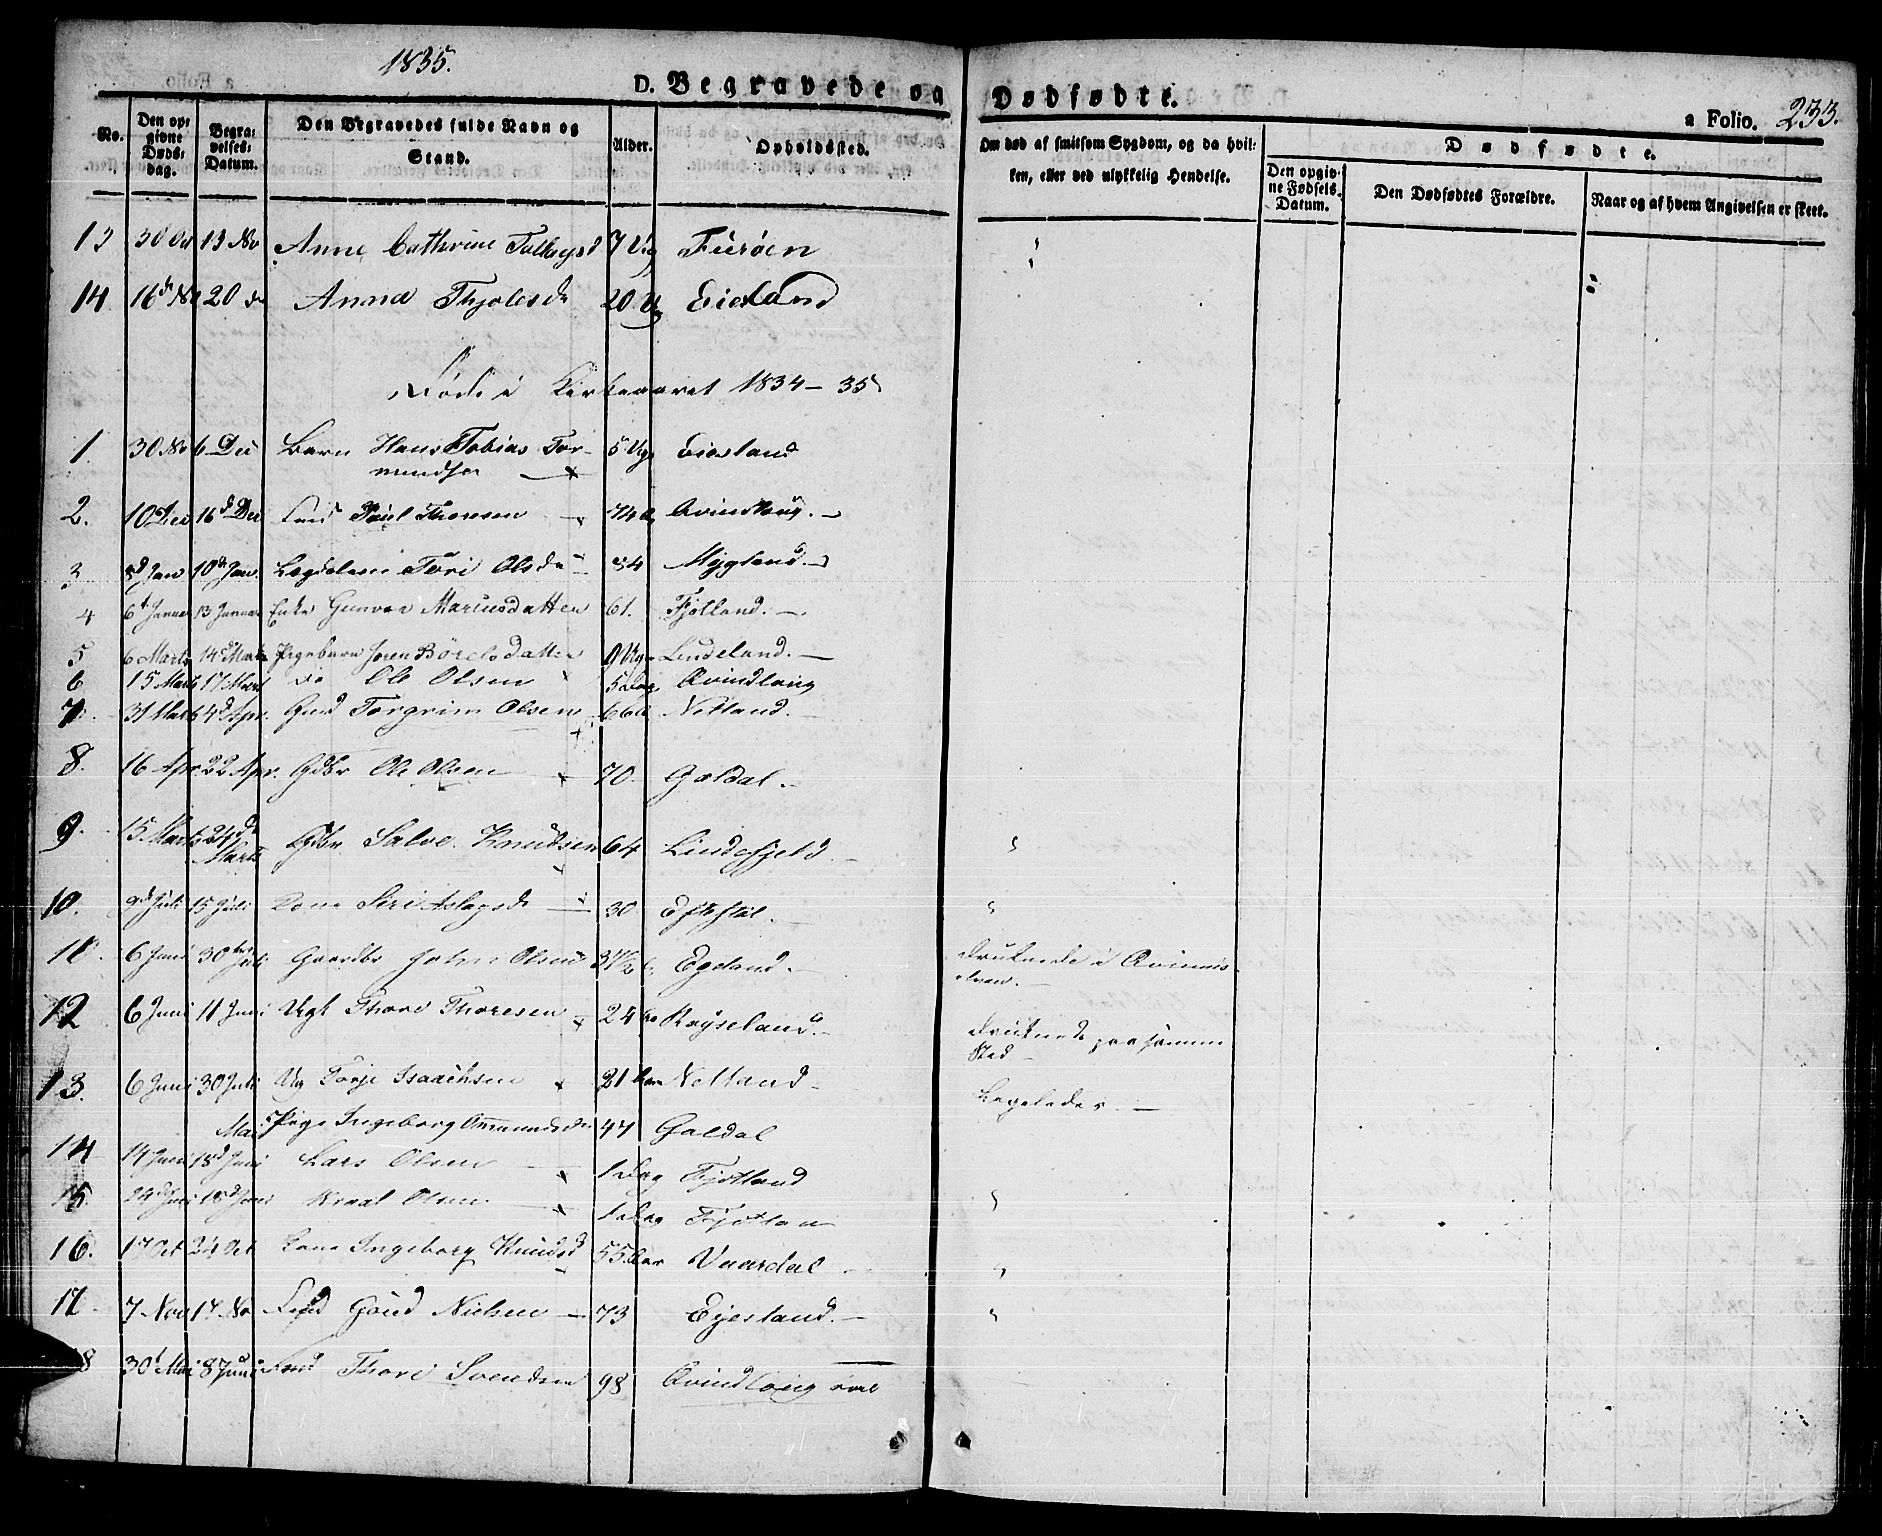 1835.
D. Begravede og Dødfødte. a Folio. 233.
No.
Den opgivne Dødsdag.
Begravelses Datum.
Den Begravedes fulde Navn og Stand.
Alder.
Opholdssted.
Om død af smitsom Sygdom, og da hvilken, eller ved ulykkelig Hendelse.
Dødfødte.
Den opgivne Fødsels-Datum.
Den Dødfødtes Forældre.
Naar og af hvem Angivelsen er skeet.
13 30 Oct 13 Nov Anne Cathrine 7 Ug
14. 16d Nov 20 do Anna 20 Ug Eieland
Døde i Kirkeaaret 1834-35
1. 30 Nov 6 Dec Barn Hans Tobias Tormundsen 5 Ug Eiesland
2. 10 Dec 16d Dec Paul Thoresen 74 Qvindlaug.
3 Jan 10d Jan. Tori Olsd 34 Mygland.
4 6t Januar 13 Januar Enke Gunvor Mariusdatter 61. Fjotland.
5 6 Marts 14d Marts Pigebarn Børelsdatter 9 Uger Lindeland.
6 15 Marts 17 Mart do Ole Olsen 5 Dage Qvindlaug
7. 31 Marts 4d Apr. Torgrim Olsen 66 Netland.
8. 16 Apr. 22 Apr. Gdbr Ole Olsen 70. Galdal.
9. 15 Marts 24de Marts Gdbr Salve Knudsen 64 Lindefjeld.
10. 9d Juli 15 Juli Kone Siri Aslagsd 30 Eftestøl.
11. 6 Juni 30 Juli Gaardbr John Olsen 31 1/2 Egeland. druknede i
elven.
12 6 Juni 11 Juni Ugk Thore Thoresen 24 Røyseland. druknede paa samme
Sted
13. 6 Juni 30 Juli Ug Torje Isaachsen 21 Aar Netland Ligeledes.
Mai Pige Ingeborg 47 Galdal
14 14 Juni 18d Juni Lars Olsen 1 Dag Fjotland
15. 24d Juni 18d Juni Olsen 1 Dag Fjotlan
16. 17 Oct 24 Oct Kone Ingeborg Knudsd 55 Aar Vaardal
17. 7 Nov 14 Nov Gaud Nielsen 73 Ejesland.
8 30t Mai 8 Juni Thore Svendsen 98 Qvindlaug